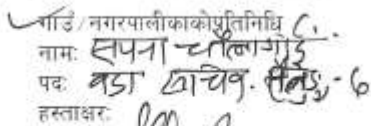 गाउँ/नगरपालीकाकोप्रतिनिधि
नामः सपना चौलागाई
पदः वडा सचिव.
हस्ताक्षरः